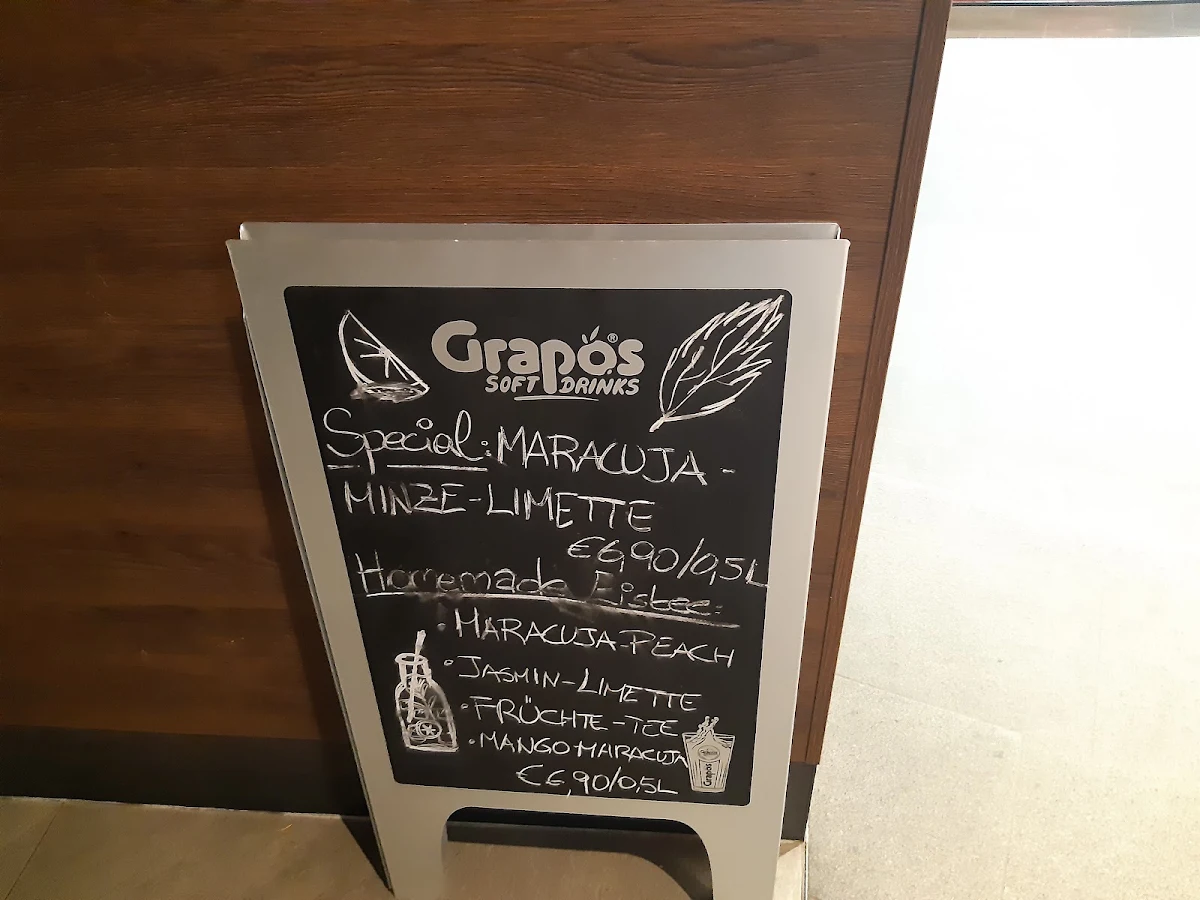 Grapos®
SOFT DRINKS
Special: MARACUJA-
MINZE-LIMETTE
€6,90/0,5L
Homemade Eistee:
• MARACUJA-PEACH
• JASMIN-LIMETTE
• FRÜCHTE-TEE
• MANGO-MARACUJA
€6,90/0,5L
Grapos